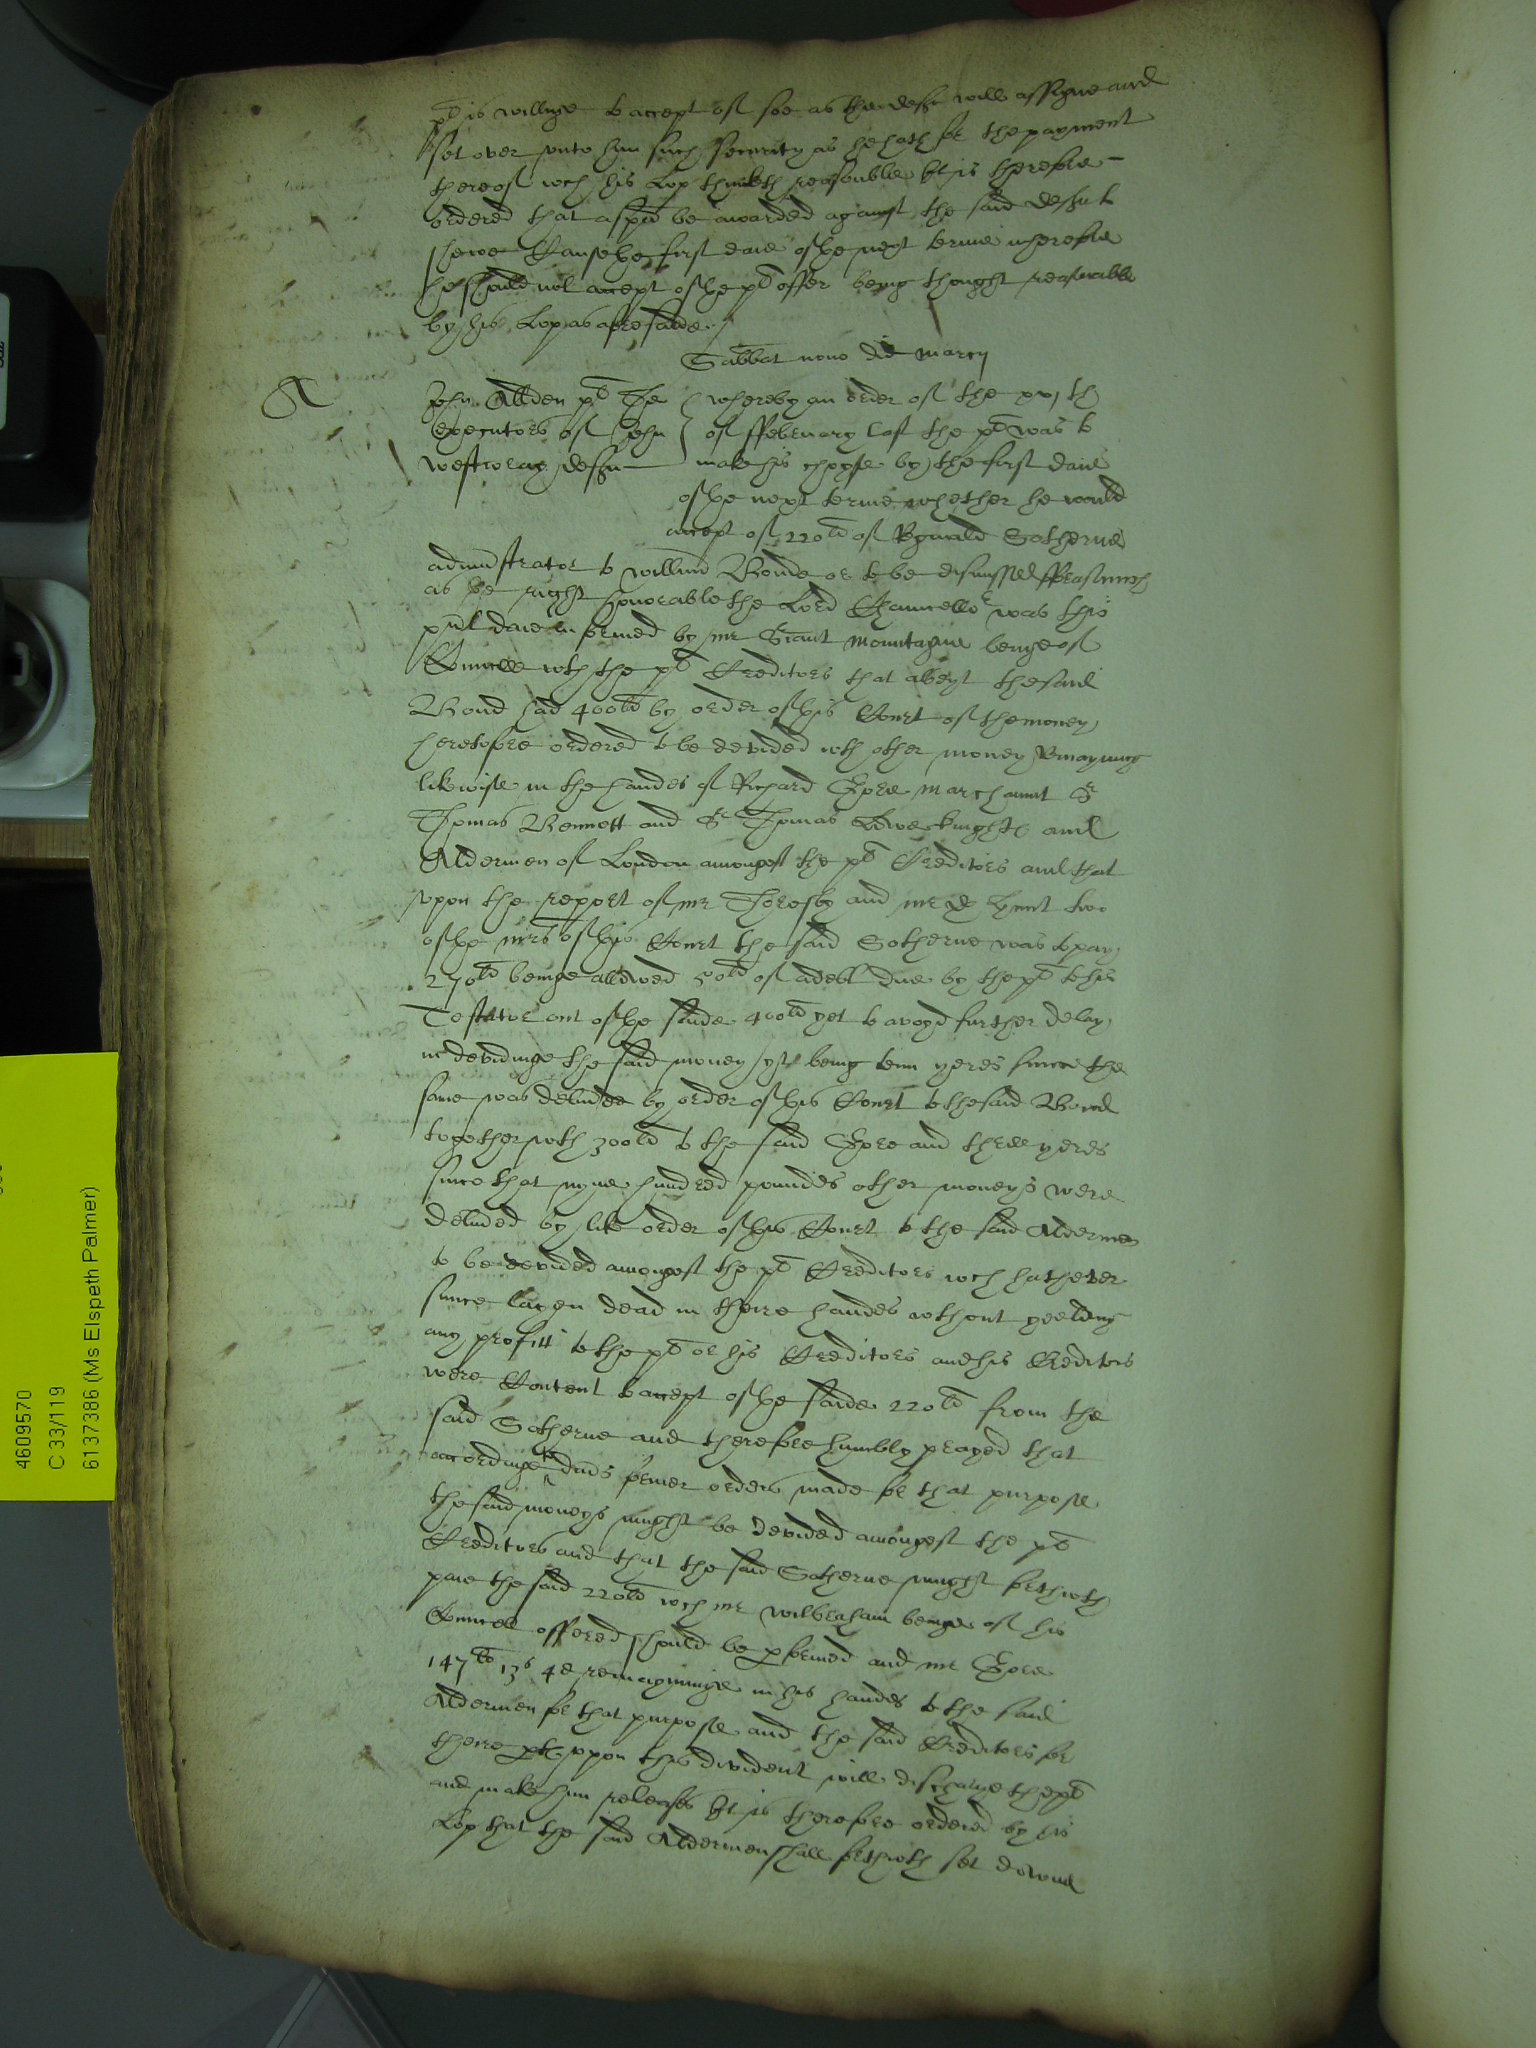 plt is willinge to accept of soe as the deft will assigne and
set over unto him such security as he hath for the payment
thereof wch his Lop thinketh reasonable It is therefore
ordered that a spna be awarded against the said deft to
shewe Cause the first daie of the next terme wherefore
he should not accept of the pd offer being thought reasonable
by his Lop as aforesaide
Sabbat nono die marcij
A
John Allden plt The
executors of John
westwray defts
whereby an order of the xxjth
of ffebruary last the plt was to
make his choyse by the first daie
of the next terme whether he would
accept of 220ld of Rynald Sotherne
administrator to willm Bonde or to be dismissed fforasmuch
as the right honorable the Lord Chauncellor was this
pnt daie informed by mr Sriant Mountague beinge of
Councell wth the plt Creditors that albeyt the said
Bond had 400ld by order of this Court of the money
heretofore ordered to be devided wth other money Remayning
likewise in the handes of Richard Gore marchaunt Sr
Thomas Bennett and Sr Thomas Lowe knights and
Aldermen of London amongest the plt Creditors and that
upon the report of mr Thoresby and mr Hunt two
of the mrs of this Court the said Sotherne was to pay
270ld beinge allowed 50ld of a debt due by the plt to his
Testator out of the saide 400ld yet to avoyd further delay
in devidinge the said money yt being tenn yeres since the
same was delivded by order of this Court to the said Bond
together wth 300ld to the said Gore and three yeres
since that nyne hundred poundes other moneys were
delivded by like order of this Court to the said Aldermen
to be devided amongest the plt Creditors wch hath ever
since layen dead in theire handes wthout yeelding
any profitt to the plt or his Creditors and his Creditors
were Content to accept of the saide 220ld from the
said Sotherne and therefore humbly prayed that
accordinge to divds former orders made for that purpose
the said moneys might be devided amongest the plt
Creditors and that the said Sotherne might forthwth
paie the said 220ld wch mr wilbraham beinge of his
Councell offered should be pformed and mr Gore
147ld 13s 4d remayninge in his handes to the said
Aldermen for that purpose and the said Creditors for
theire pte uppon this divident will discharge the plt
and make him releases It is therefore ordered by his
Lop that the said Aldermen shall forthwth set downe
4609570
C 33/119
6137386 (Ms Elspeth Palmer)